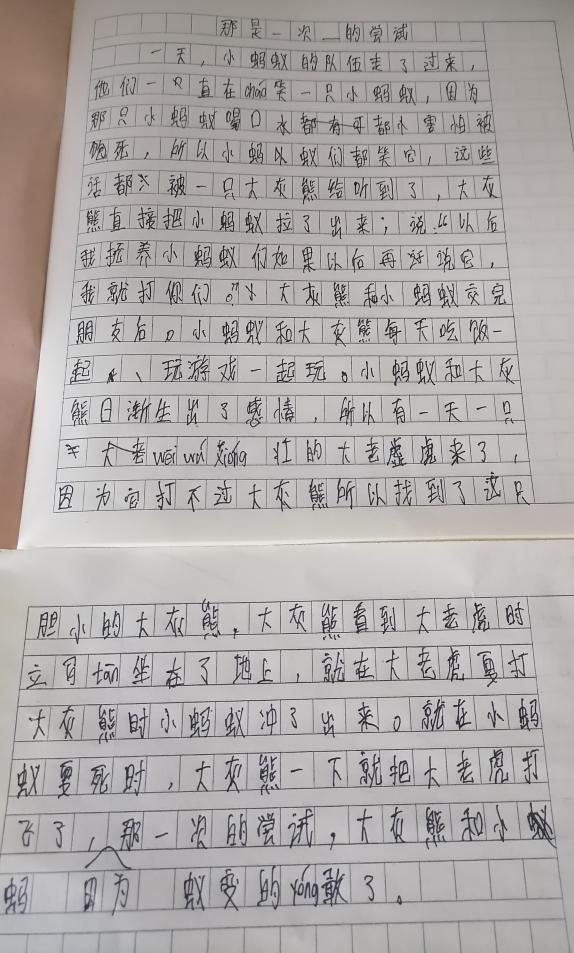 那是一次__的尝试
一天，小蚂蚁的队伍走了过来，
他们一直在cháo笑一只小蚂蚁，因为
那只小蚂蚁喝口水都害怕被
呛死，所以小蚂蚁们都笑它，这些
话都被一只大灰熊给听到了，大灰
熊直接把小蚂蚁拉了出来；说：“以后
我抚养小蚂蚁们如果以后再说它，
我就打你们。”大灰熊和小蚂蚁交完
朋友后。小蚂蚁和大灰熊每天吃饭一
起、玩游戏一起玩。小蚂蚁和大灰
熊日渐生出了感情，所以有一天一只
大老wēi wǔ xióng 壮的大老虎来了，
因为它打不过大灰熊所以找到了这只
胆小的大灰熊，大灰熊看到大老虎时
立可tān坐在了地上，就在大老虎要打
大灰熊时小蚂蚁冲了出来。就在小蚂
蚁要死时，大灰熊一下就把大老虎打
飞了，因为那一次的尝试，大灰熊和小
蚂蚁变的yǒng敢了。